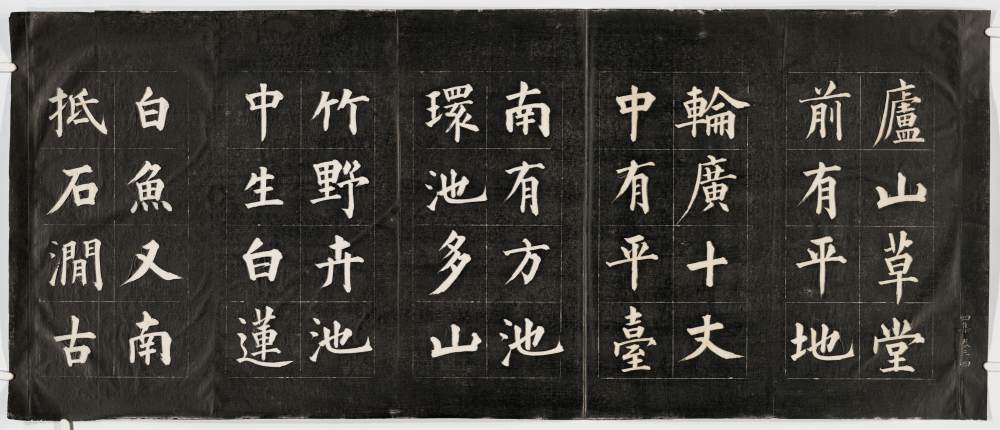 廬山草堂
前有平地
輪廣十丈
中有平臺
南有方池
環池多山
竹野卉池
中生白蓮
白魚又南
抵石澗古